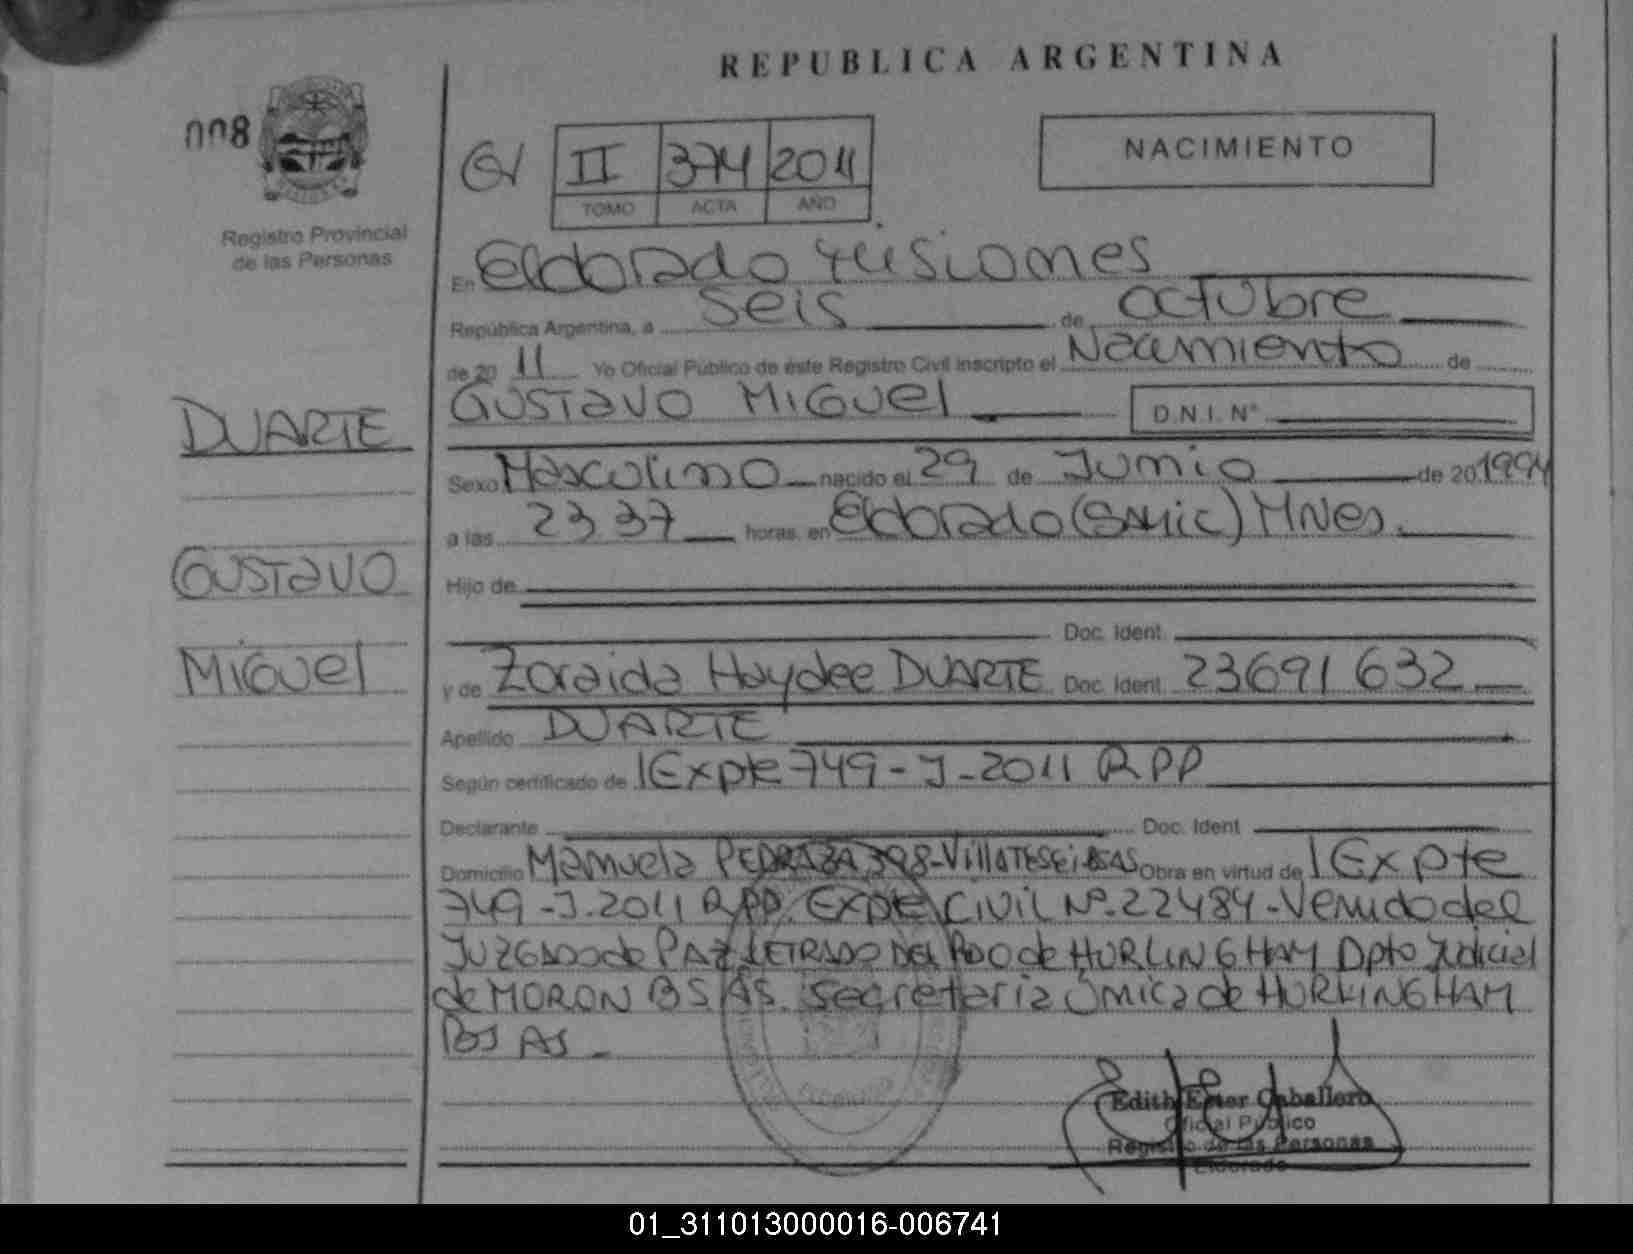 REPUBLICA ARGENTINA
008
II 374 2011
TOMO ACTA AÑO
NACIMIENTO
Registro Provincial
de las Personas
En Eldorado Misiones
República Argentina, a seis de octubre
de 20 11 Yo Oficial Público de éste Registro Civil inscripto el Nacimiento de
GUSTAVO MIGUEL D.N.I. Nº
DUARTE
Sexo Masculino nacido el 29 de Junio de 20 1994
a las 23 37 horas en Eldorado (SAMIC) MNes.
GUSTAVO
Hijo de
Doc. Ident.
MIGUEL
y de Zoraida Haydee DUARTE Doc. Ident. 23691632
Apellido DUARTE
Según certificado de Expte 749-J-2011 RPP
Declarante Doc. Ident
Domicilio Manuela PEDRAZA 398-Villa TESEI BSAS Obra en virtud de Expte
749-J-2011 RPP. Expte CIVIL Nº 22484-Venido del
JUZGADO de PAZ LETRADO DEL PDO de HURLINGHAM Dpto Judicial
de MORON BS.AS. Secretaria única de HURLINGHAM
BS AS -
ELDORADO
Edith Ester Caballero
Oficial Público
Registro de las Personas
Eldorado
01_311013000016-006741